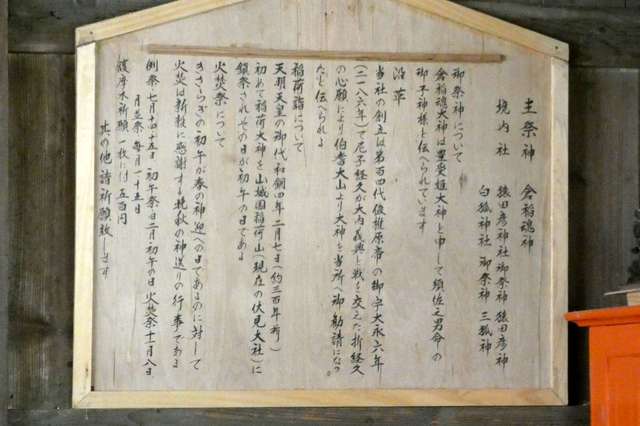 主祭神 倉稲魂神
境内社 猿田彦神社御祭神猿田彦神
白狐神社 御祭神 三狐神
御祭神について
倉稲魂大神は豊受姫大神と申して須佐之男命の
御子神様と伝へられています
沿革
当社の創立は第百四代後柏原帝の御宇大永六年
(二一八六年)で尼子経久が大内義興と戦を交えた折経久
の心願により伯耆大山より大神を当所へ御勧請になっ
たと伝へられる
稲荷詣について
天明天皇の御代和銅四年二月七日(約三百年前)
初めて稲荷大神を山城国稲荷山(現在の伏見大社)に
鎮祭されその日が初午の日である
火焚祭について
きさらぎの初午が春の神迎への日であるのに対して
火焚は新穀に感謝する晩秋の神送りの行事である
例祭七月十四十五日 初午祭旧二月初午の日 火焚祭十二月八日
月並祭 毎月一十五日
護摩木祈願 一枚に付 五百円
其の他諸祈願致します